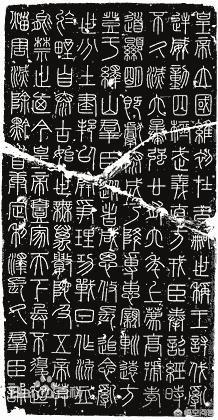 皇帝立國維初在昔嗣世稱王討伐亂
逆威動四極武義直方戎臣奉詔經時
不久滅六暴強廿有六年上薦高號孝
道顯明既獻泰成乃降尃惠親巡遠方
登于繹山群臣從者咸思攸長追念亂
世分土建邦以開爭理功戰日作流血
於野自泰古始世無萬數陀及五帝莫
能禁止廼今皇帝壹家天下兵不復起
災害滅除黔首康定利澤長久群臣誦